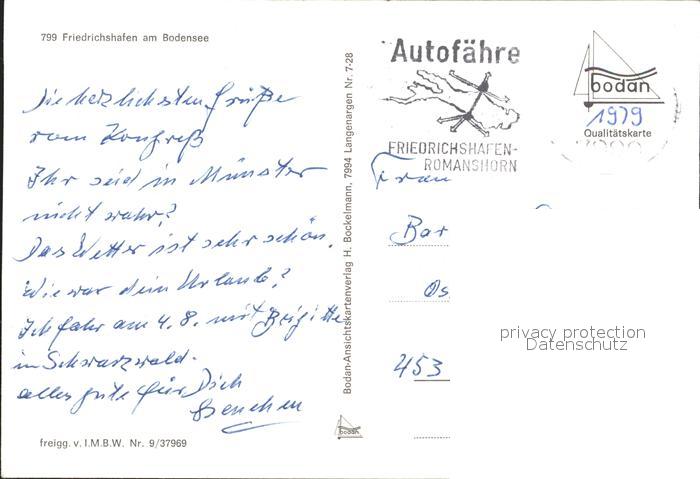 799 Friedrichshafen am Bodensee
Die herzlichsten Grüße
vom Kongreß
Ihr seid in Münster
nicht wahr?
Das Wetter ist sehr schön.
Wie war dein Urlaub?
Ich fahr am 4.8. mit Brigitte
in Schwarzwald.
alles gute für Dich
freigg. v. I.M.B.W. Nr. 9/37969
Bodan-Ansichtskartenverlag H. Bockelmann, 7994 Langenargen Nr. 7-28
bodan
Autofähre
FRIEDRICHSHAFEN-
ROMANSHORN
bodan
1979
Qualitätskarte
Frau
Bar
Os
453
privacy protection
Datenschutz